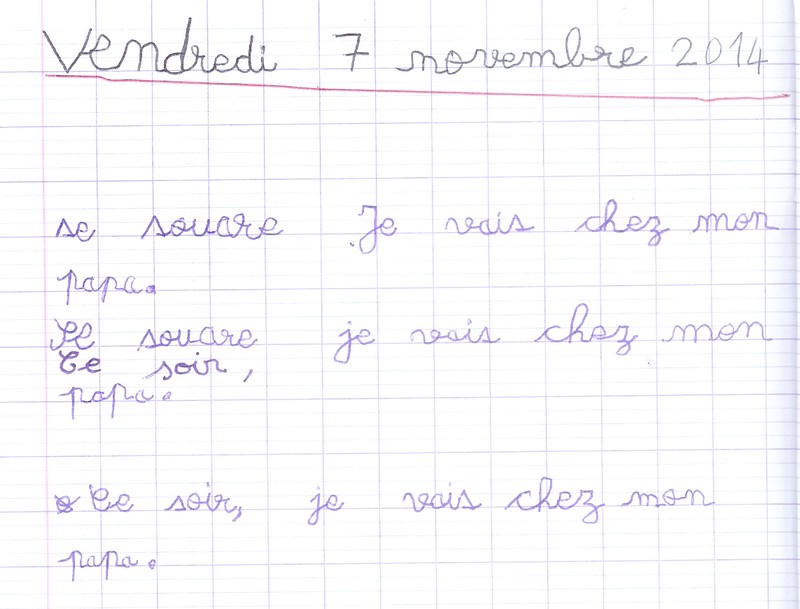 Vendredi 7 novembre 2014
se souare Je vais chez mon
papa.
Se souare je vais chez mon
Ce soir,
papa.
Ce soir, je vais chez mon
papa.